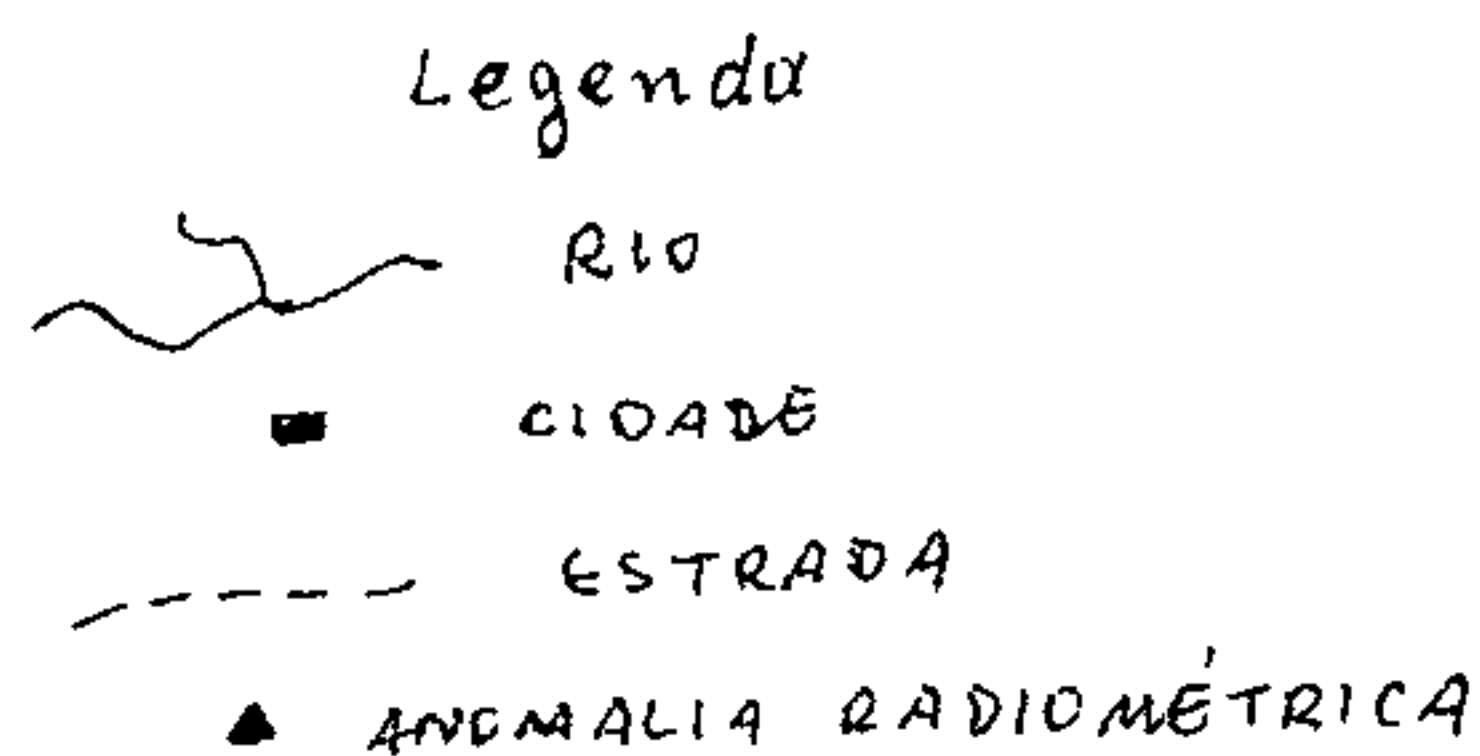 Legenda
RIO
CIDADE
ESTRADA
ANOMALIA RADIOMÉTRICA